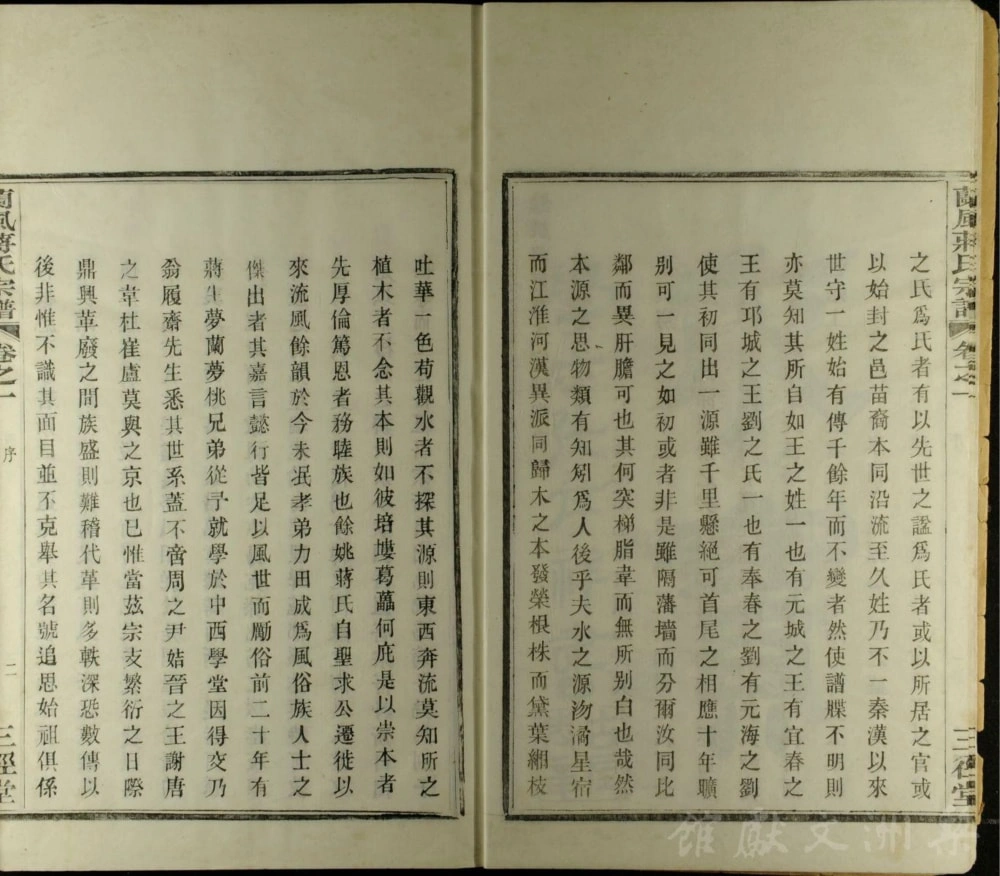 蘭風蔣氏宗譜 卷之一
三徑堂
之氏爲氏者有以先世之謚爲氏者或以所居之官或
以始封之邑苗裔本同沿流至久姓乃不一秦漢以來
世守一姓始有傳千餘年而不變者然使譜牒不明則
亦莫知其所自如王之姓一也有元城之王有宜春之
王有邛城之王劉之氏一也有奉春之劉有元海之劉
使其初同出一源雖千里懸絕可首尾之相應十年曠
别可一見之如初或者非是雖隔藩墻而分爾汝同比
鄰而異肝膽可也其何突梯脂韋而無所别白也哉然
本源之思物類有知矧爲人後乎夫水之源沕潏星宿
而江淮河漢異派同歸木之本發榮根株而黛葉緗枝
吐華一色苟觀水者不探其源則東西奔流莫知所之
植木者不念其本則如彼培塿葛藟何庇是以崇本者
先厚倫篤恩者務睦族也餘姚蔣氏自聖求公遷徙以
來流風餘韻於今未泯孝弟力田成爲風俗族人士之
傑出者其嘉言懿行皆足以風世而勵俗前二十年有
蔣生夢蘭夢桃兄弟從予就學於中西學堂因得交乃
翁履齋先生悉其世系蓋不啻周之尹姞晉之王謝唐
之韋杜崔盧莫與之京也已惟當兹宗支繁衍之日際
鼎興革廢之間族盛則難稽代革則多軼深恐數傳以
後非惟不識其面目並不克舉其名號追思始祖俱係
蘭風蔣氏宗譜 卷之一 序 二 三徑堂
梨洲文獻館